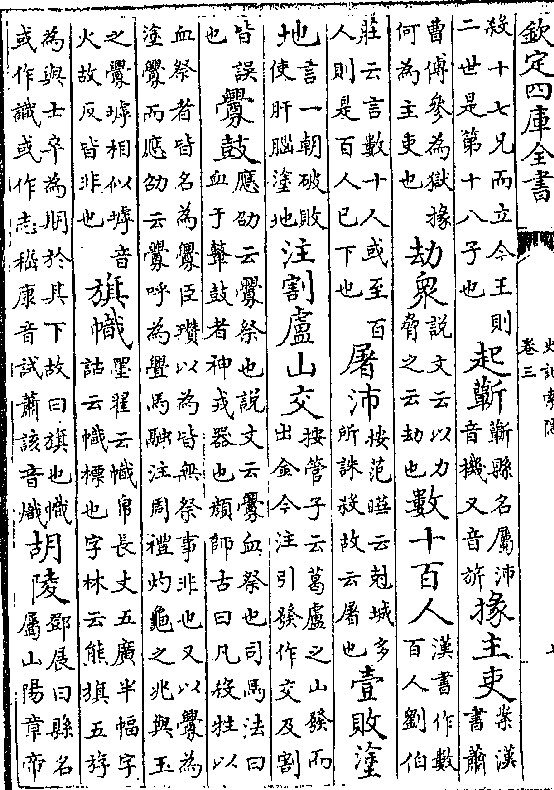 欽定四庫全書
史記索隱
卷三
殺十七兄而立今王則
二世是第十八子也
起蘄
蘄縣名屬沛
音機又音旂
掾主吏
案漢
書蕭
曹傅參為獄掾
何為主吏也
劫衆
說文云以力
脅之云劫也
數十百人
漢書作數
百人劉伯
莊云言數十人或至百
人則是百人已下也
屠沛
按范曄云剋城多
所誅殺故云屠也
壹敗塗
地
言一朝破敗
使肝腦塗地
注割盧山交
按管子云葛盧之山發而
出金今注引發作交及割
皆誤
也
釁鼓
應劭云釁祭也說文云釁血祭也司馬法曰
血于鼙鼓者神戎器也顔師古曰凡殺牲以
血祭者皆名為釁臣瓚以為皆無祭事非也又以釁為
塗釁而應劭云釁呼為舋馬融注周禮灼龜之兆與玉
之釁罅相似罅音
火故反皆非也
旗幟
墨翟云幟帛長丈五廣半幅字
詁云幟標也字林云熊旗五斿
為與士卒為期於其下故曰旗也幟
或作識或作志嵇康音試蕭該音熾
胡陵
鄧展曰縣名
屬山陽章帝